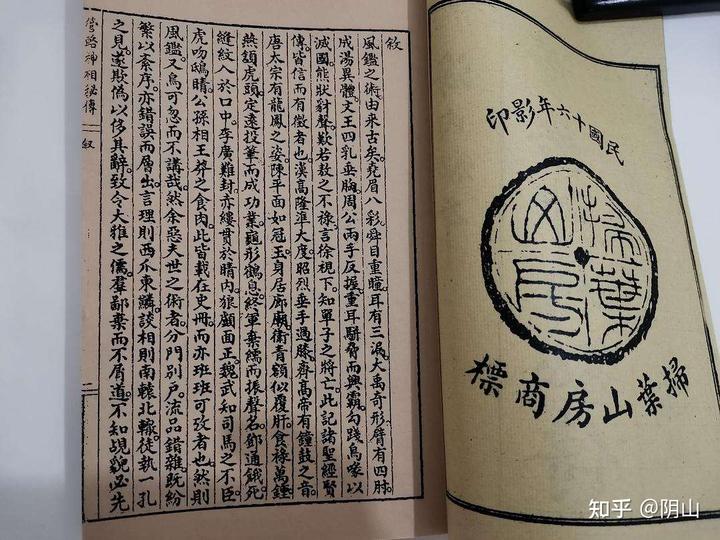 民國十六年影印
掃葉山房
掃葉山房商標
敘
風鑑之術。由來古矣。堯眉八彩。舜目重瞳。耳有三漏。大禹奇形。臂有四肘。
成湯異體。文王四乳垂胸。周公兩手反握。重耳駢脅而興霸。勾踐烏喙以
滅國。熊狀豺聲。歎若敖之不祿。言徐視下。知單子之將亡。此記諸聖經賢
傳。皆信而有徵者也。漢高隆準大度。昭烈垂手過膝。齊高帝有鐘鼓之音。
唐太宗有龍鳳之姿。陳平面如冠玉。身居廊廟。衛青額似覆肝。食祿萬鍾。
燕頷虎頭。定遠投筆而成功業。龜形鶴息。終軍棄繻而振聲名。鄧通餓死。
縫紋入於口中。李廣難封。亦縷貫於睛內。狼顧面正。魏武知司馬之不臣。
虎吻鴟睛。公孫相王莽之食肉。此皆載在史冊。而亦班班可攷者也。然則
風鑑又烏可忽而不講哉。然余惡夫世之術者。分門別戶。流品錯雜。既紛
繁以紊序。亦錯誤而層出。言理則西爪東鱗。談相則南轅北轍。徒執一孔
之見。遂欺偽以侈其辭。致令大雅之儒。羣鄙棄而不屑道。不知覘貌必先
管輅神相秘傳 叙
知乎 @阴山